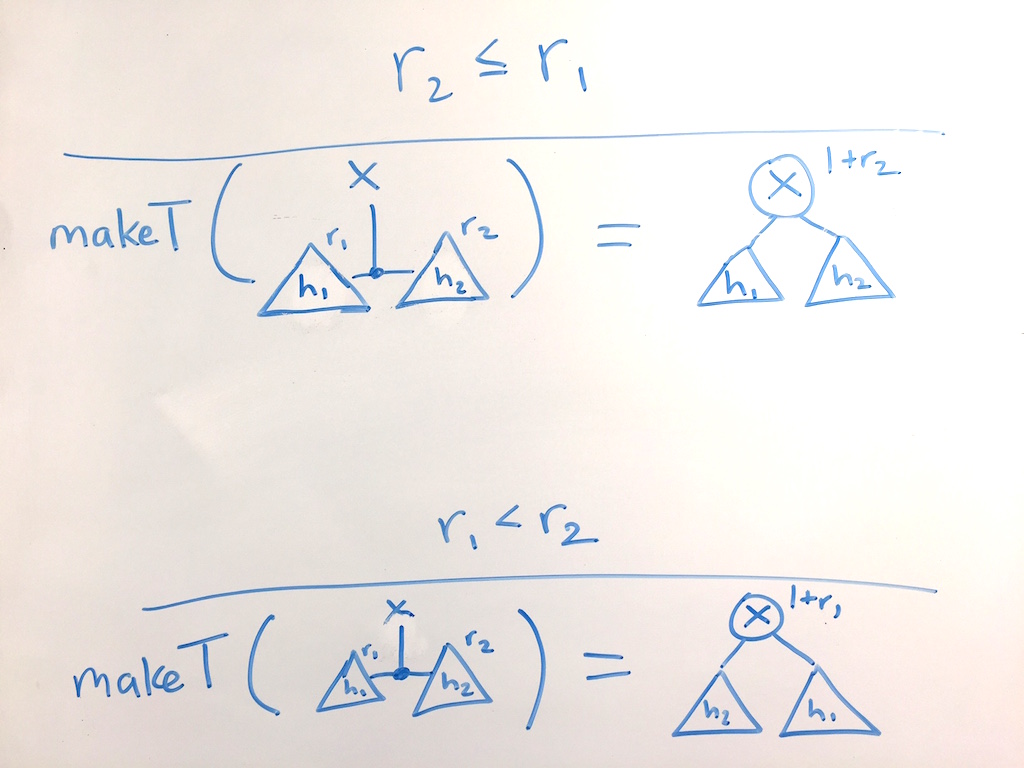 r₂ ≤ r₁
makeT ( x h₁ r₁ h₂ r₂ ) = x 1+r₂ h₁ h₂
r₁ < r₂
makeT ( x h₁ r₁ h₂ r₂ ) = x 1+r₁ h₂ h₁